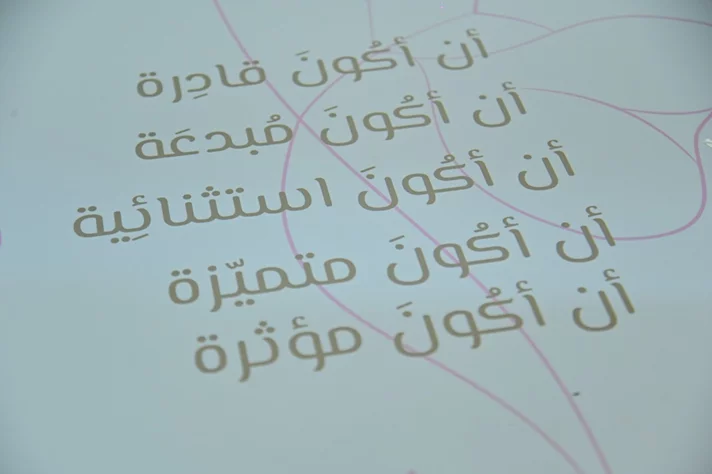 أن أكُونَ قادِرة
أن أكُونَ مُبدعَة
أن أكُونَ استثنائِية
أن أكُونَ متميّزة
أن أكُونَ مؤثرة